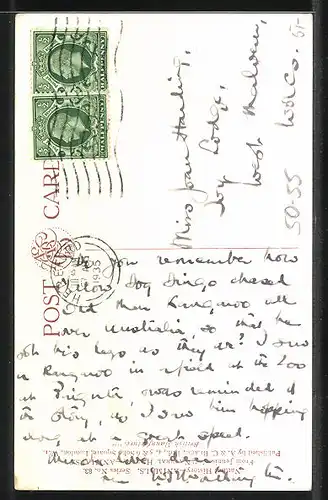 POST CARD
Miss Joan Harling,
Ivy Lodge,
West Malvern,
Worcs.
50-55
HALFPENNY
HALFPENNY
1935
Do you remember how
Yellow Dog Dingo chased
Old Man Kangaroo all
over Australia, so that he
his legs as they are? I saw
a Kangaroo in a field at the Zoo
at , & was reminded of
the story, as I saw him hopping
along at a great speed.
Much love, dear,
Published by A. & C. Black, Ltd., 4, 5 & 6 Soho Square, London, W.1
Natural History—ANIMALS. Series